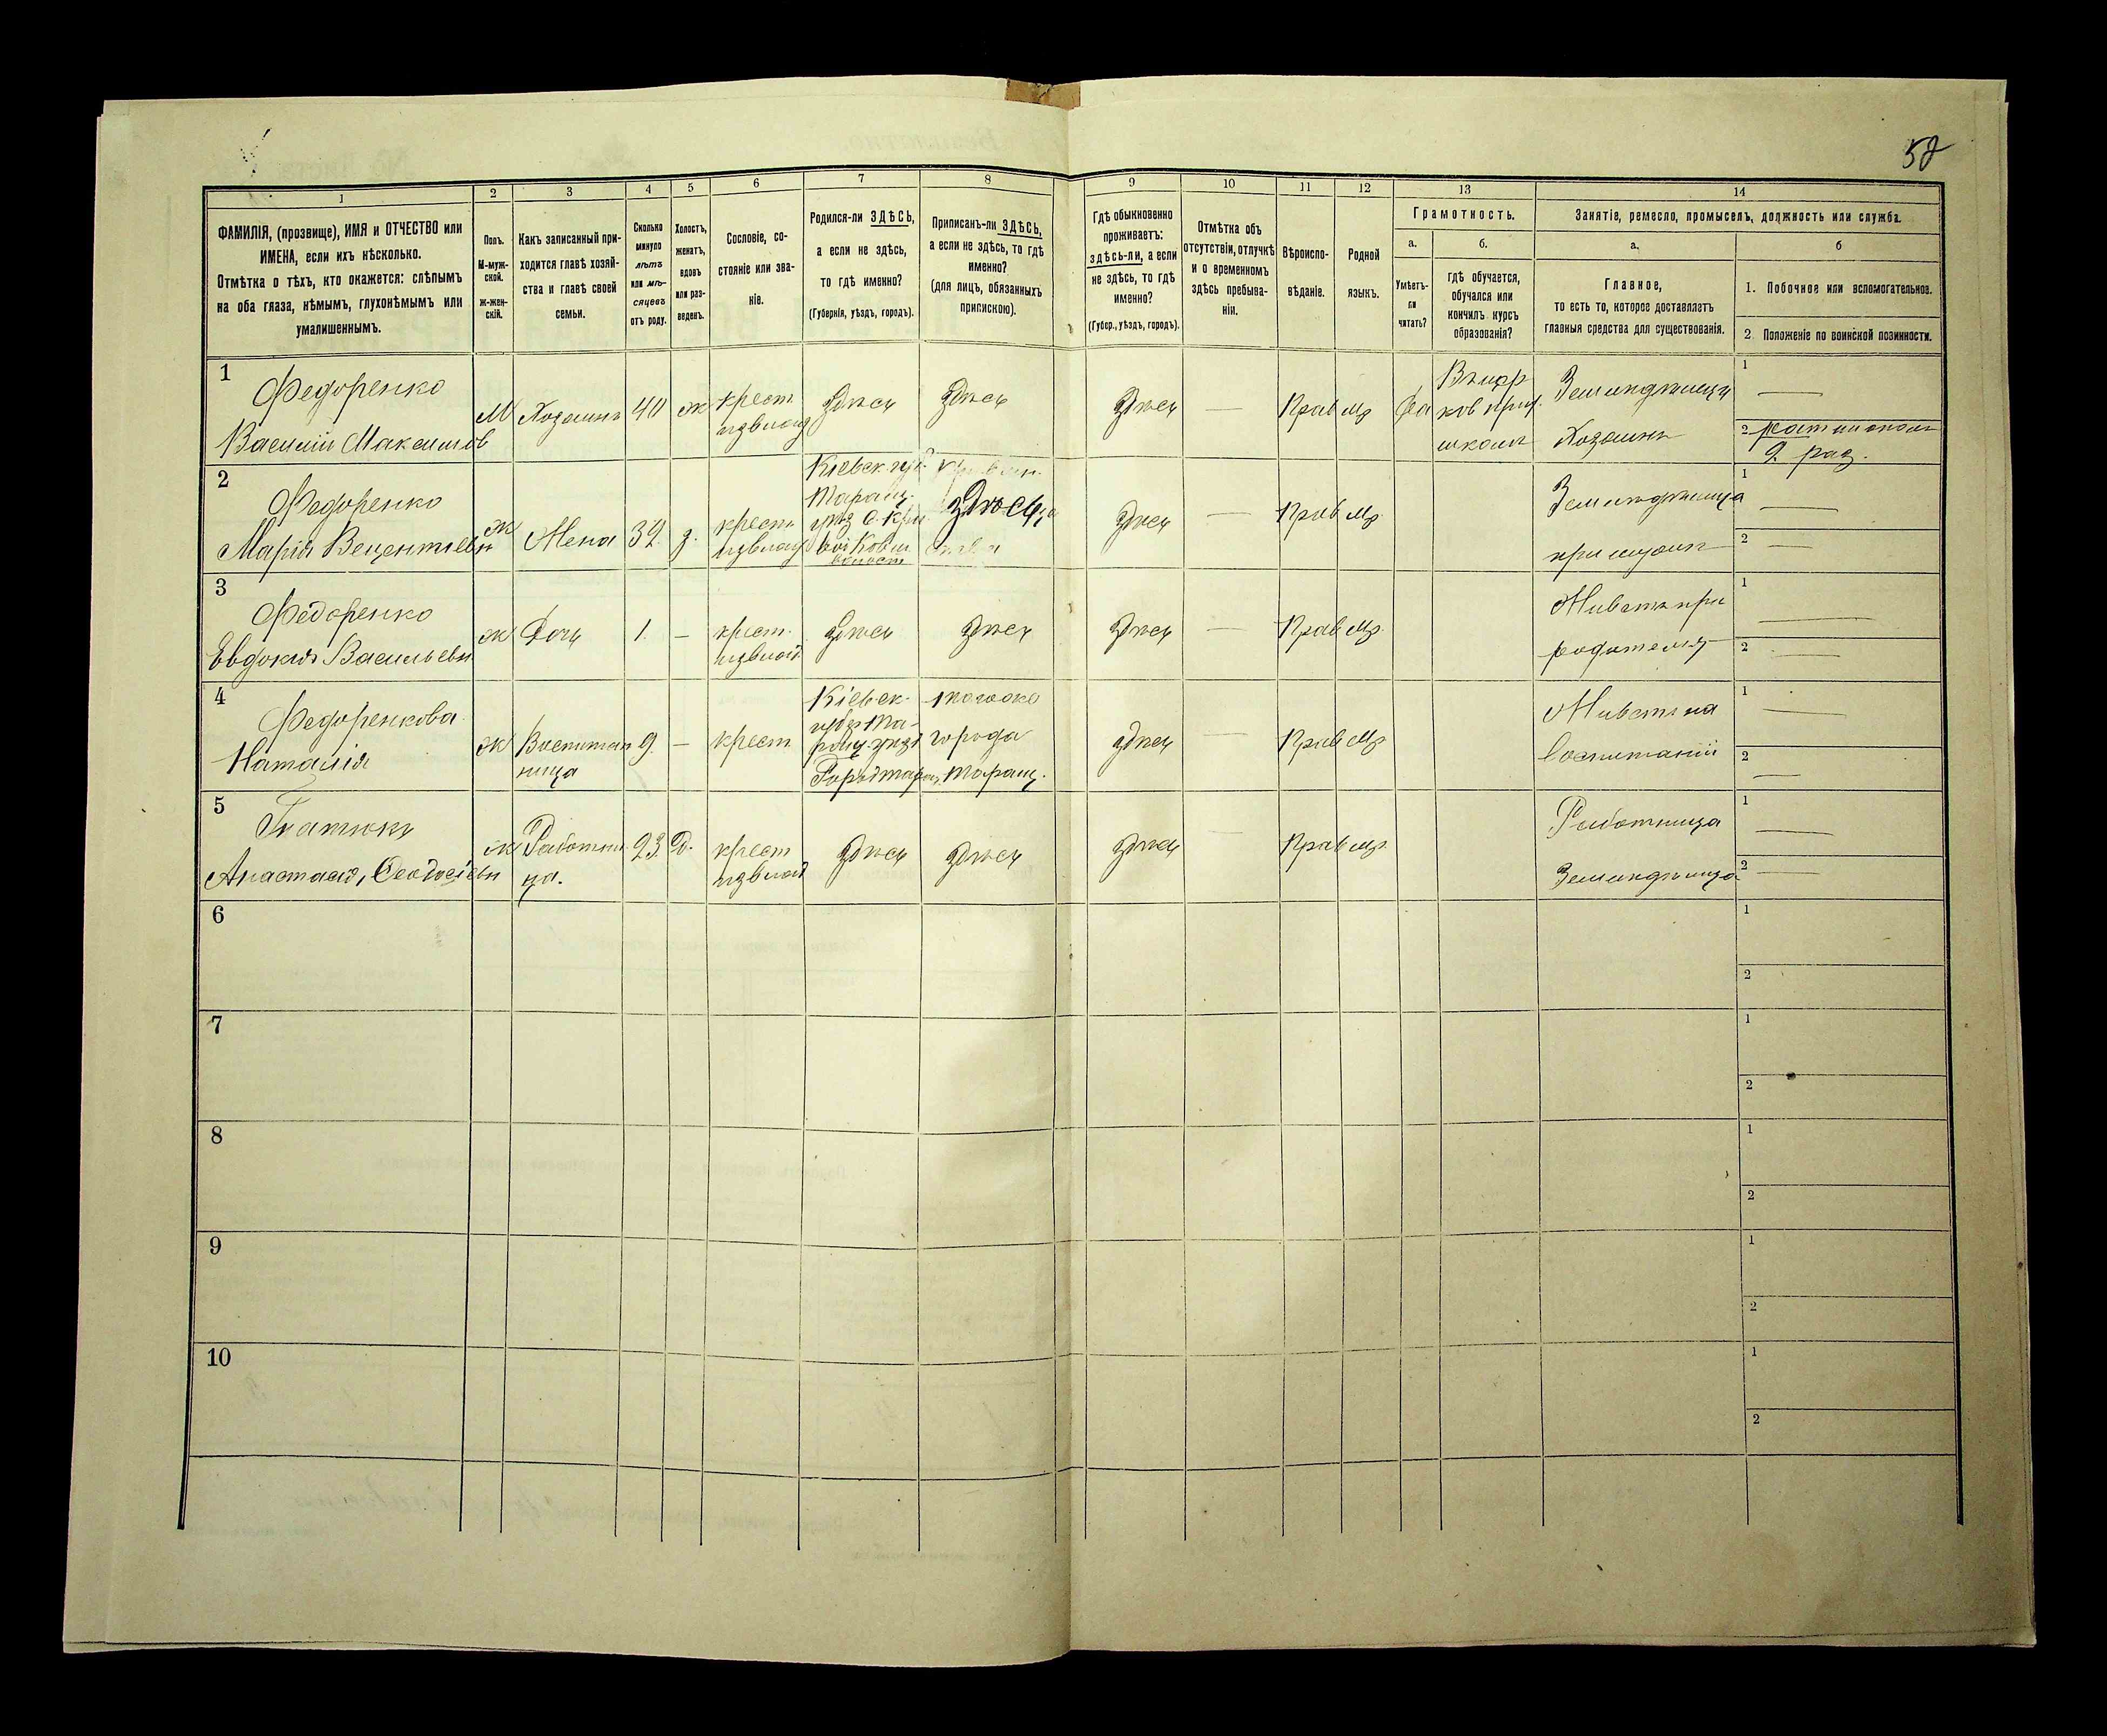 58
1
2
3
4
5
6
7
8
9
10
11
12
13
14
ФАМИЛІЯ, (прозвище), ИМЯ и ОТЧЕСТВО или
ИМЕНА, если ихъ нѣсколько.
Отмѣтка о тѣхъ, кто окажется: слѣпымъ
на оба глаза, нѣмымъ, глухонѣмымъ или
умалишеннымъ.
Полъ.
М-муж-
ской.
ж-жен-
скій.
Какъ записанный при-
ходится главѣ хозяй-
ства и главѣ своей
семьи.
Сколько
минуло
лѣтъ
или мѣ-
сяцевъ
отъ роду.
Холостъ,
женатъ,
вдовъ
или раз-
веденъ.
Сословіе, со-
стояніе или зва-
ніе.
Родился-ли ЗДѢСЬ,
а если не здѣсь,
то гдѣ именно?
(Губернія, уѣздъ, городъ).
Приписанъ-ли ЗДѢСЬ,
а если не здѣсь, то гдѣ
именно?
(для лицъ, обязанныхъ
припискою).
Гдѣ обыкновенно
проживаетъ:
здѣсь-ли, а если
не здѣсь, то гдѣ
именно?
(Губер., уѣздъ, городъ).
Отмѣтка объ
отсутствіи, отлучкѣ
и о временномъ
здѣсь пребыва-
ніи.
Вѣроиспо-
вѣданіе.
Родной
языкъ.
Грамотность.
а.
б.
Умѣетъ-
ли
читать?
гдѣ обучается,
обучался или
кончилъ курсъ
образованія?
Занятіе, ремесло, промыселъ, должность или служба.
а.
б
Главное,
то есть то, которое доставляетъ
главныя средства для существованія.
1. Побочное или вспомогательное.
2. Положеніе по воинской повинности.
1
Федоренко
Василій Максимов
М
Хозяинъ
40
ж
крест
извлад
Здѣсь
Здѣсь
Здѣсь
—
Прав
мр
Да
школѣ
Земледѣлецъ
Хозяинъ
1 —
2
2
Федоренко
Марія
ж
Жена
32
з.
крестъ
извлад
Кіевск. губ.
Таращ.
здѣсь
Здѣсь
—
Прав
мр.
Земледѣлица
1 —
2 —
3
Федоренко
Евдокія Васильевн
ж
Дочь
1.
—
крест.
извлад
Здѣсь
Здѣсь
Здѣсь
—
Прав
мр.
Живетъ при
1 —
2 —
4
Федоренкова
Наталія
ж
Воспитан
ница
9
—
крест
Кіевск.
губер Та-
ращ. уѣзд
города
Таращ.
здѣсь
—
Прав
мр
Живетъ на
воспитаніи
1 —
2 —
5
Гнатюкъ
Анастасія, Феодосіевн
ж
Работни
ца.
23.
Д.
крест
извлад
Здѣсь
Здѣсь
Здѣсь
—
Прав
мр.
Работница
Земледѣлица
1 —
2 —
6
1
2
7
1
2
8
1
2
9
1
2
10
1
2